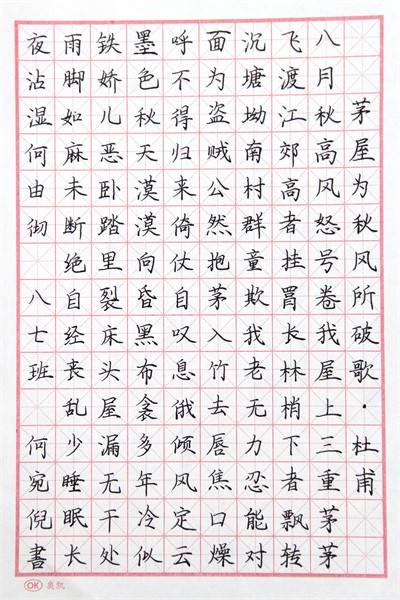 茅屋为秋风所破歌·杜甫
八月秋高风怒号卷我屋上三重茅茅
飞渡江郊高者挂罥长林梢下者飘转
沉塘坳南村群童欺我老无力忍能对
面为盗贼公然抱茅入竹去唇焦口燥
呼不得归来倚仗自叹息俄倾风定云
墨色秋天漠漠向昏黑布衾多年冷似
铁娇儿恶卧踏里裂床头屋漏无干处
雨脚如麻未断绝自经丧乱少睡眠长
夜沾湿何由彻 八七班 何宛倪書
OK 奥凯